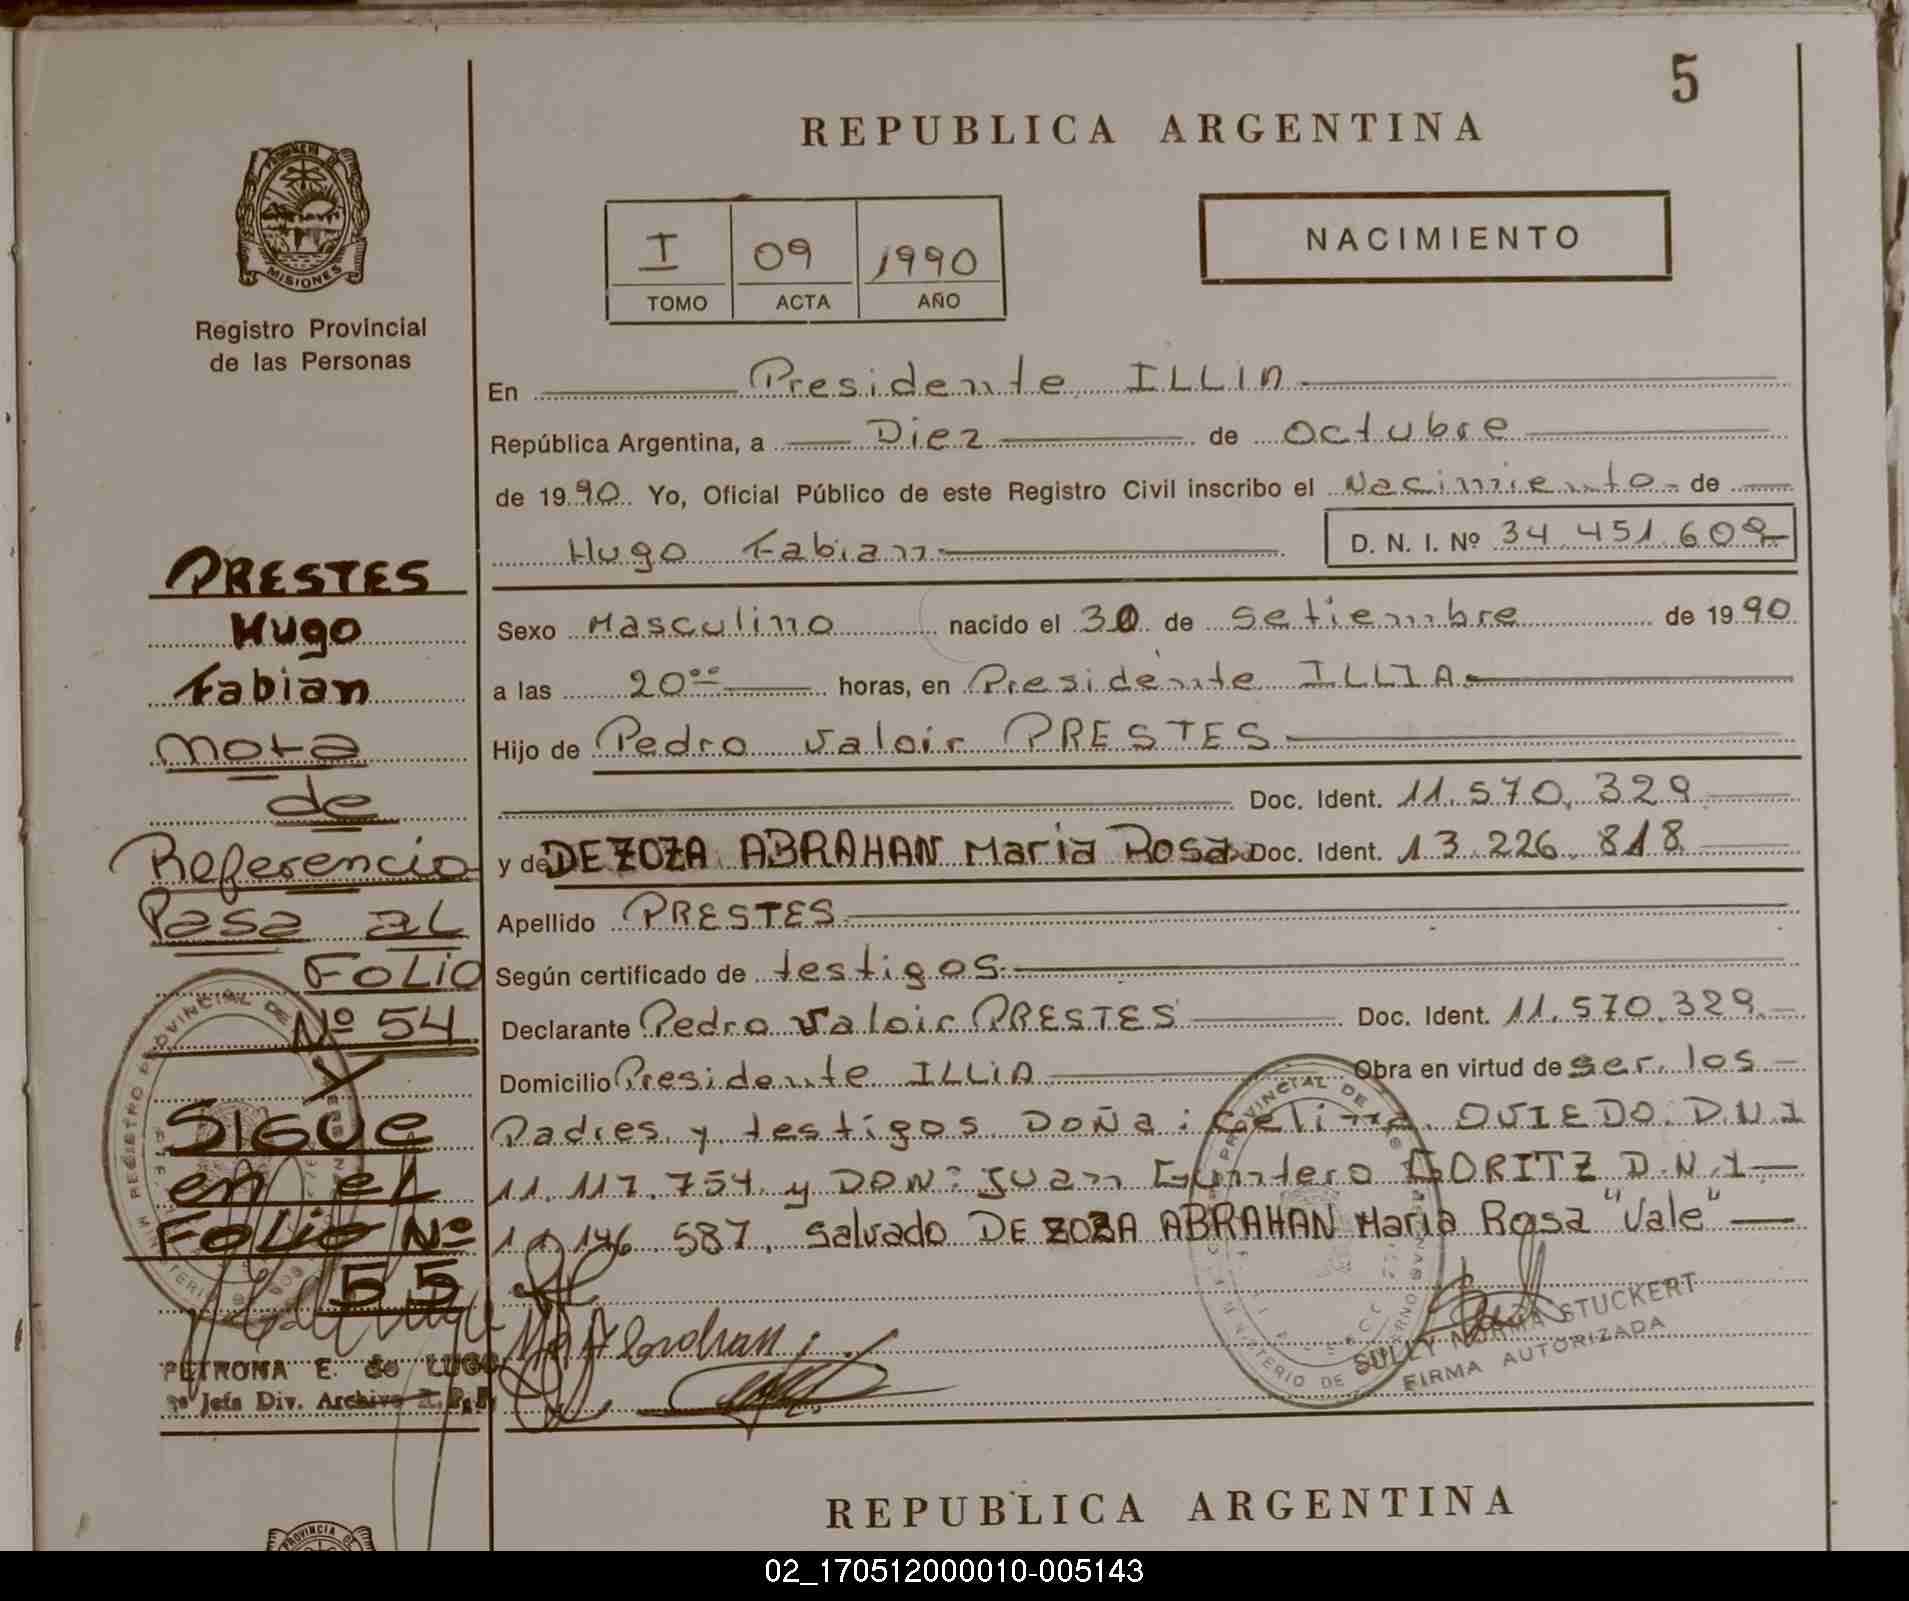 5
REPUBLICA ARGENTINA
PROVINCIA DE
MISIONES
Registro Provincial
de las Personas
I 09 1990
TOMO ACTA AÑO
NACIMIENTO
En Presidente ILLIA
República Argentina, a Diez de Octubre
de 1990 Yo, Oficial Público de este Registro Civil inscribo el Nacimiento de
Hugo Fabian D. N. I. Nº 34.451.609
Sexo Masculino nacido el 30 de Setiembre de 1990
a las 20°° horas, en Presidente ILLIA
Hijo de Pedro Valoir PRESTES
Doc. Ident. 11.570.329
y de DE ZOZA ABRAHAN Maria Rosa Doc. Ident. 13.226.818
Apellido PRESTES
Según certificado de testigos
Declarante Pedro Valoir PRESTES Doc. Ident. 11.570.329
Domicilio Presidente ILLIA Obra en virtud de ser los
Padres y testigos DOÑa: Celina OVIEDO D.N.I
11.117.754 y DON: Juan GORITZ D.N.I
587, Salvado DE ZOZA ABRAHAN Maria Rosa "Vale"
PRESTES
Hugo
Fabian
nota
de
Referencia
Pasa al
FOLIO
Nº 54
Y
SIGUE
en el
FOLIO Nº
55
PETRONA E. de LUGO
Jefa Div. Archivo
SULLY NORMA STUCKERT
FIRMA AUTORIZADA
REPUBLICA ARGENTINA
PROVINCIA DE
02_170512000010-005143